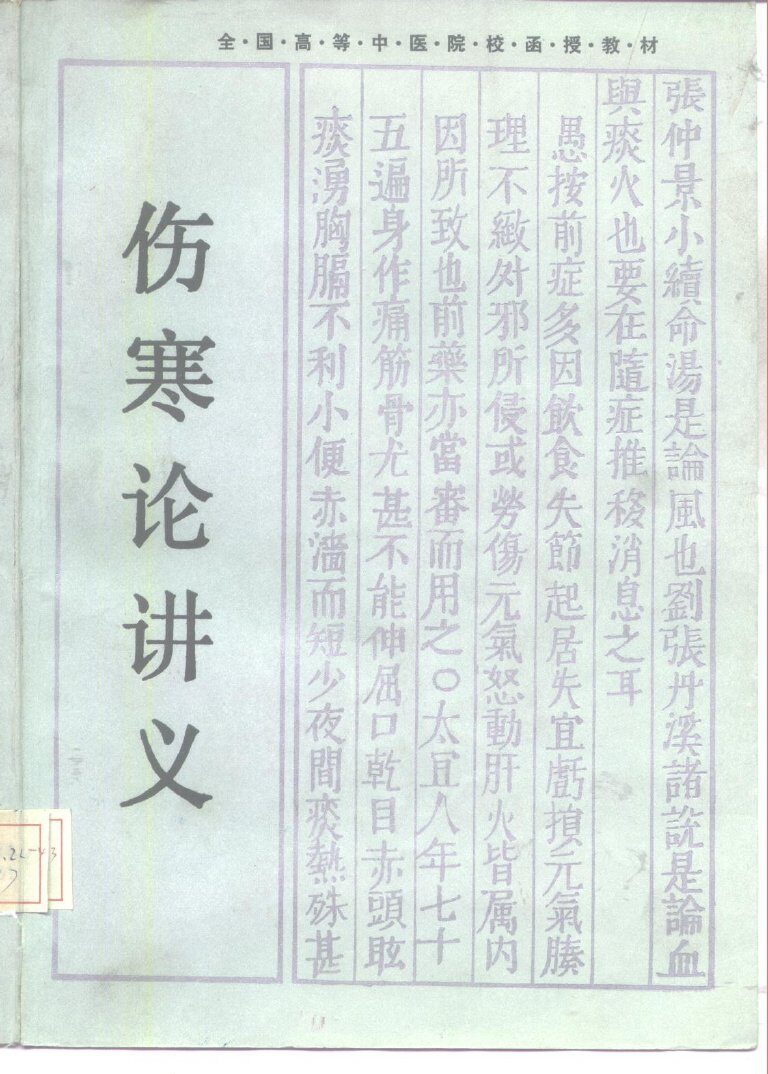 全·国·高·等·中·医·院·校·函·授·教·材
張仲景小續命湯是論風也劉張丹溪諸說是論血
與痰火也要在隨症推移消息之耳
愚按前症多因飲食失節起居失宜虧損元氣腠
理不緻外邪所侵或勞傷元氣怒動肝火皆属内
因所致也前藥亦當審而用之○太宜人年七十
五遍身作痛筋骨尤甚不能伸屈口乾目赤頭眩
痰湧胸膈不利小便赤濇而短少夜間痰熱殊甚
伤寒论讲义